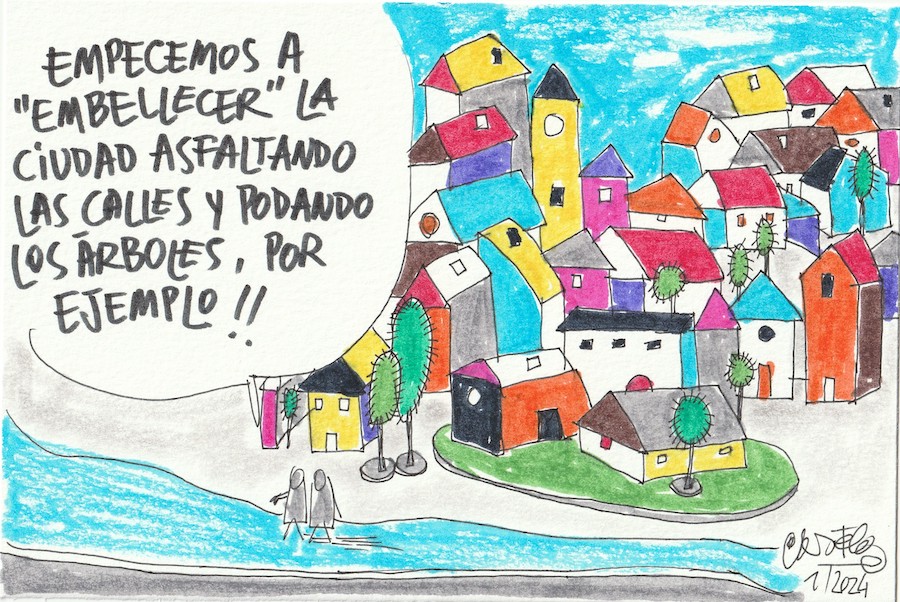 EMPECEMOS A
"EMBELLECER" LA
CIUDAD ASFALTANDO
LAS CALLES Y PODANDO
LOS ÁRBOLES, POR
EJEMPLO !!
1/2024